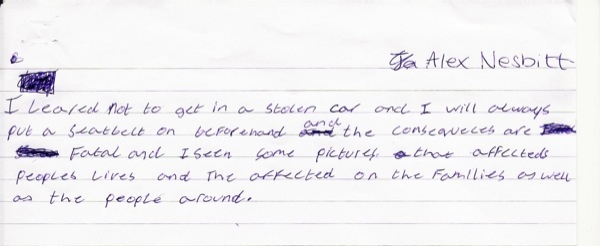 Alex Nesbitt
I Leared not to get in a stolen car and I will always
put a seatbelt on beforehand and the conseqeces are
Fatal and I seen some pictures that affecteds
peoples Lives and The affected on the Famlies as well
as the people around.